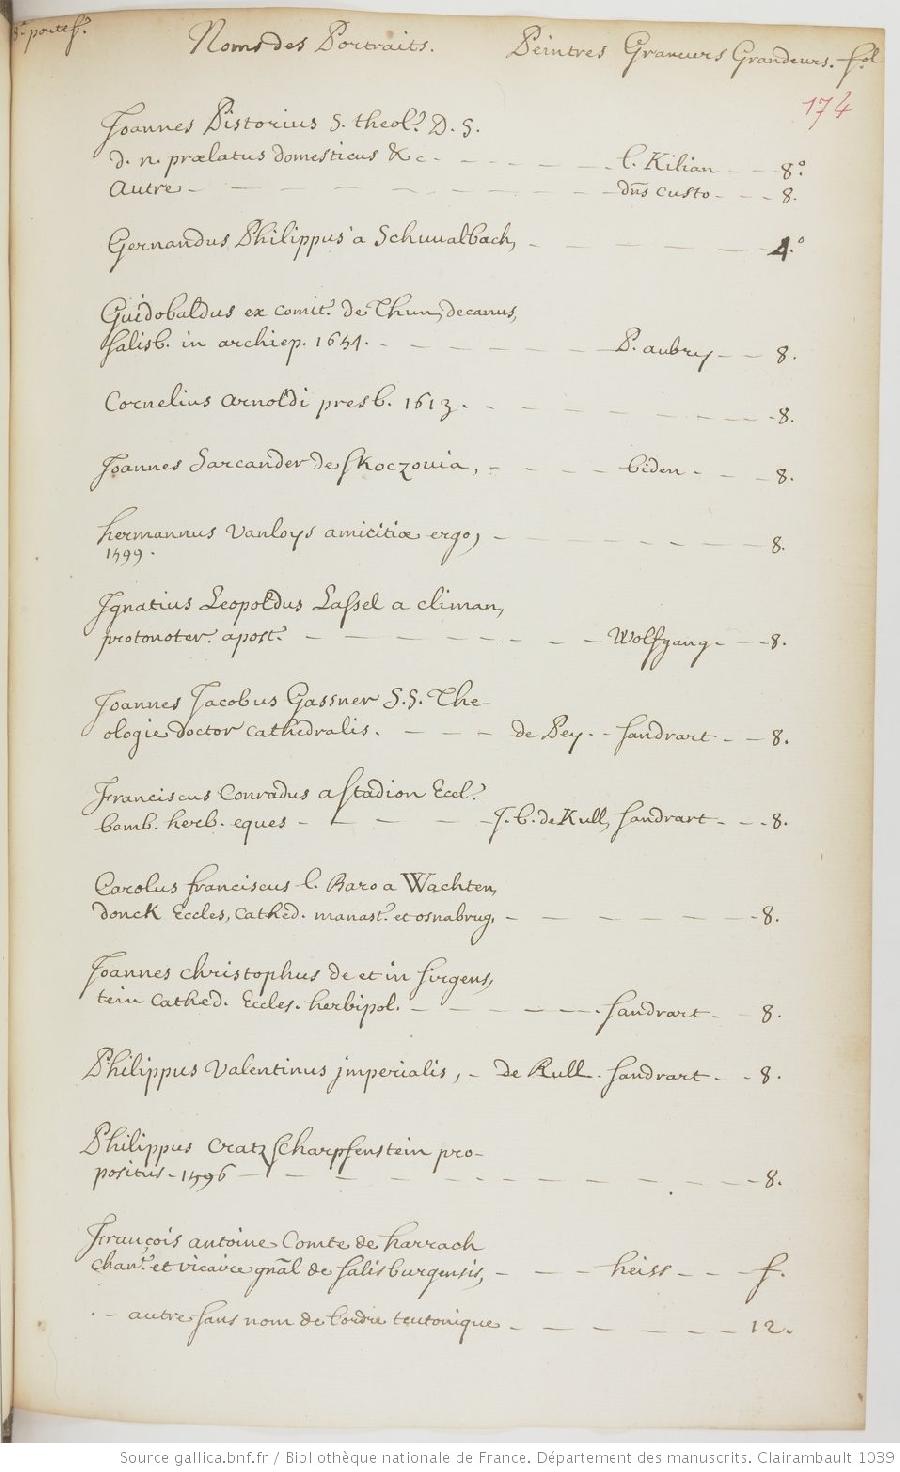 8e portef.
Noms des Portraits. Peintres Graveurs Grandeurs. fol
174
Joannes Pistorius S. theol. D. S.
d. n. prælatus domesticus &c - - - - - l. Kilian - - 8.°
Autre - - - - - - - dns custo - - - 8.
Gernandus Philippus a Schuualbach, - - - - - 4.°
Guidobaldus ex comit. de Thun, decanus,
salisb. in archiep. 1654. - - - - - P. aubry - - 8.
Cornelius Arnoldi presb. 1613. - - - - - - 8.
Joannes Sarcander de Skoczouia, - - - - biden - - - 8.
hermannus Vanloys amicitiæ ergo, - - - - - - 8.
1599.
Ignatius Leopoldus Lassel a climan,
protonoter. apost. - - - - - - - - Wolfgang - - - 8.
Joannes Jacobus Gassner S.S. The-
ologie doctor cathedralis. - - - de Pey - - sandrart - - 8.
Franciscus Conradus a stadion Eccl.
bamb. herb. eques - - - - J. b. de Kull, sandrart - - - 8.
Carolus franciscus l. Baro a Wachten,
donck Eccles, cathed. manast. et osnabrug, - - - - - - 8.
Joannes christophus de et in sirgens,
tein cathed. Eccles. herbipol. - - - - - sandrart - - 8.
Philippus Valentinus jmperialis, - de Kull - sandrart - - 8.
Philippus Cratz Scharpfenstein pro-
positus - 1596 - - - - - - - - - 8.
François antoine Comte de harrach
chan.e et vicaire gñal de salisburgensis, - - - heiss - - - f.
- autre sans nom de l'ordre teutonique - - - - - 12.
Source gallica.bnf.fr / Bibliothèque nationale de France. Département des manuscrits. Clairambault 1039